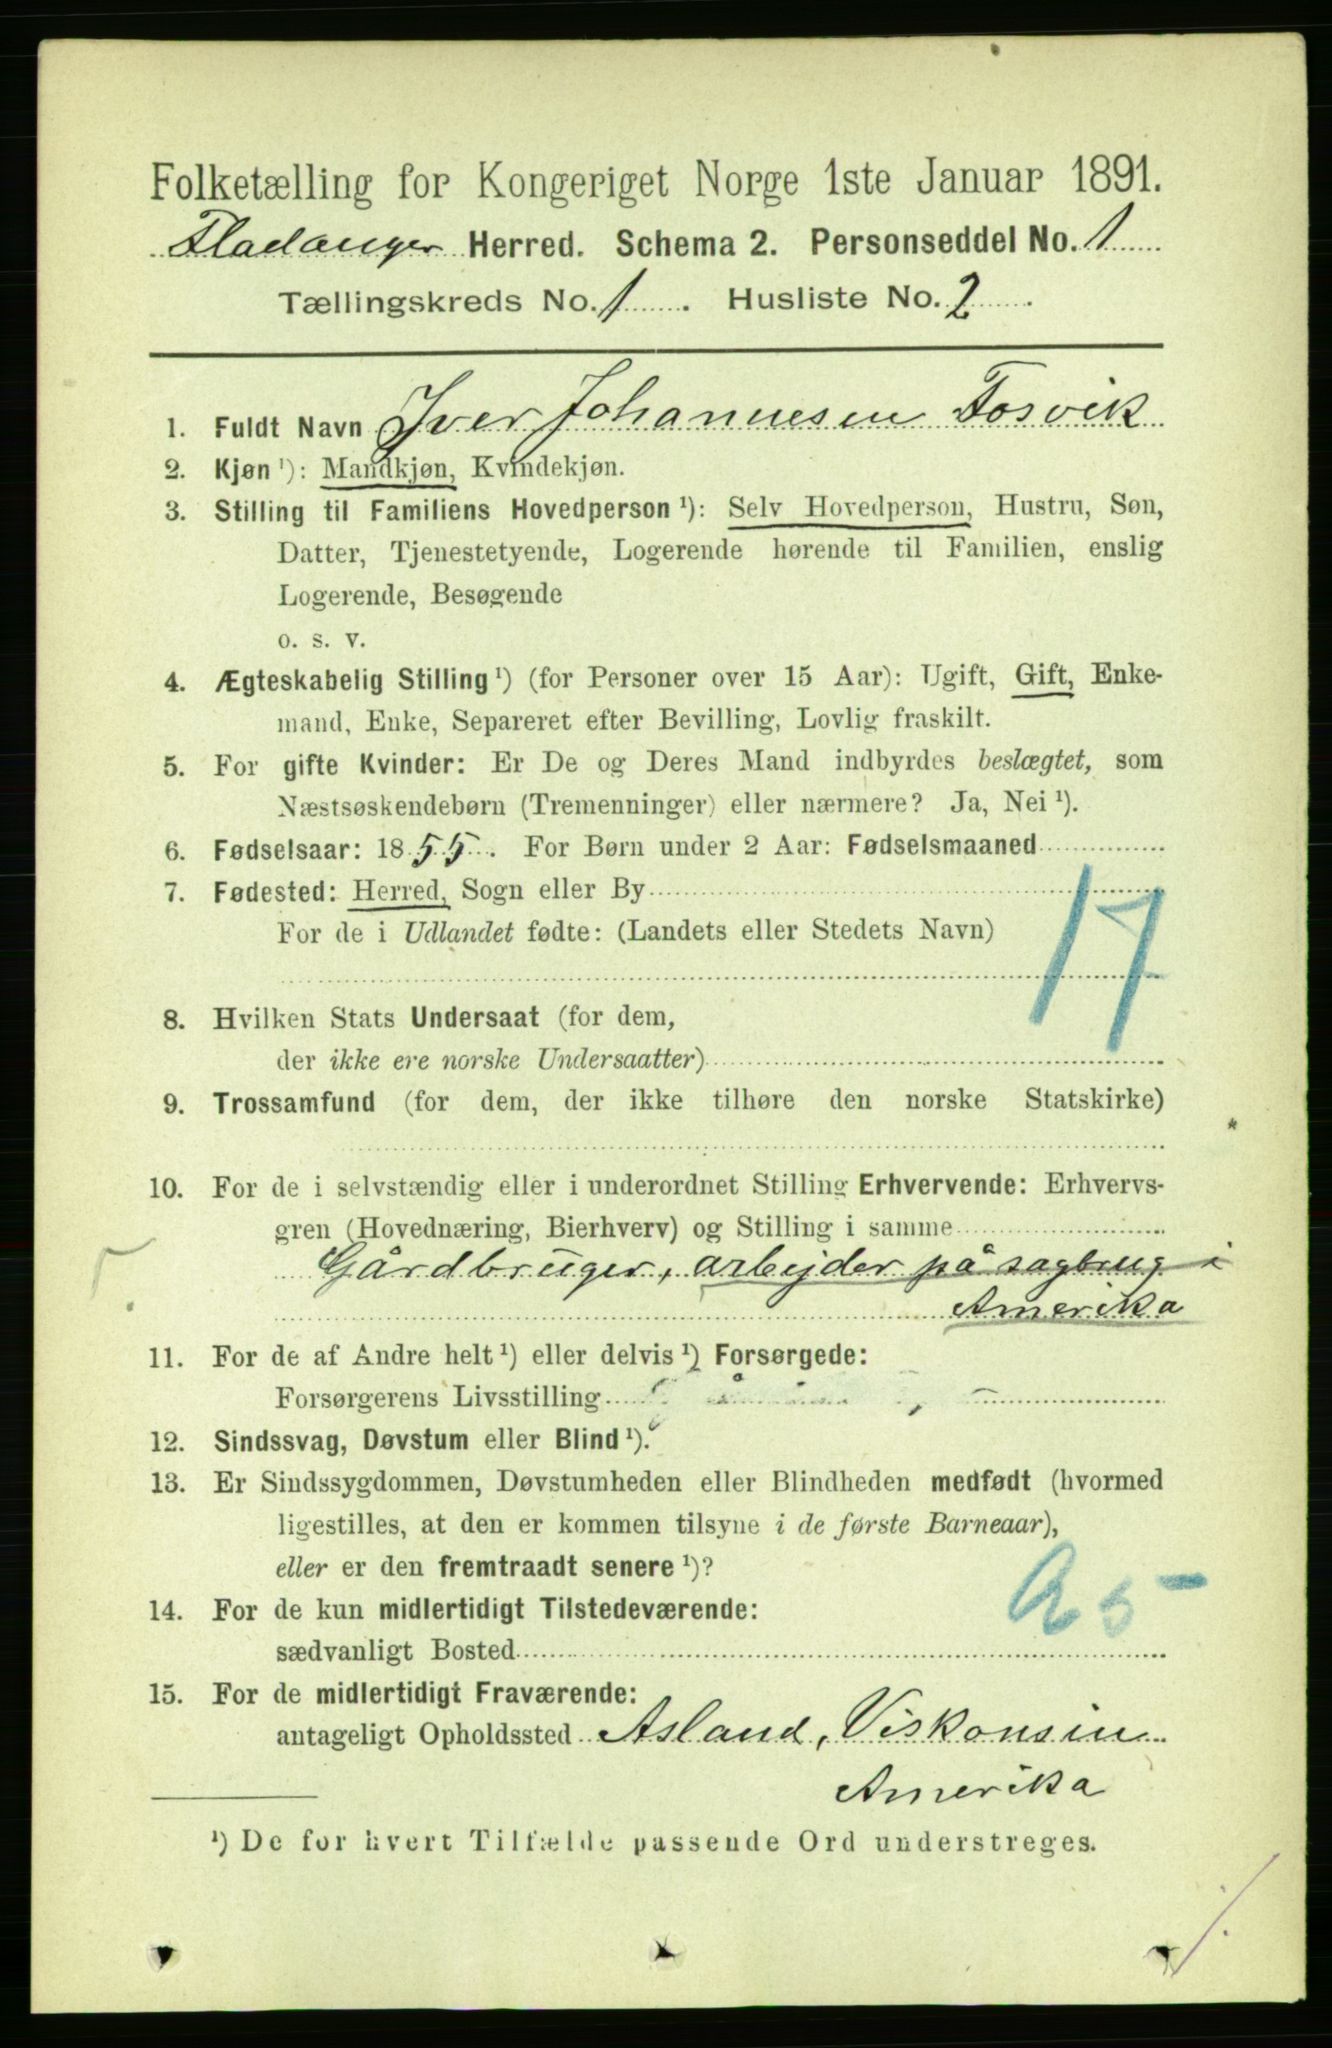 Folketælling for Kongeriget Norge 1ste Januar 1891.
Fladanger Herred. Schema 2. Personseddel No. 1
Tællingskreds No. 1. Husliste No. 2.
1. Fuldt Navn Iver Johannesen Fosvik
2. Kjøn ¹): Mandkjøn, Kvindekjøn.
3. Stilling til Familiens Hovedperson ¹): Selv Hovedperson, Hustru, Søn,
Datter, Tjenestetyende, Logerende hørende til Familien, enslig
Logerende, Besøgende
o. s. v.
4. Ægteskabelig Stilling ¹) (for Personer over 15 Aar): Ugift, Gift, Enke-
mand, Enke, Separeret efter Bevilling, Lovlig fraskilt.
5. For gifte Kvinder: Er De og Deres Mand indbyrdes beslægtet, som
Næstsøskendebørn (Tremenninger) eller nærmere? Ja, Nei ¹).
6. Fødselsaar: 1855. For Børn under 2 Aar: Fødselsmaaned
7. Fødested: Herred, Sogn eller By
17
For de i Udlandet fødte: (Landets eller Stedets Navn)
8. Hvilken Stats Undersaat (for dem,
der ikke ere norske Undersaatter)
9. Trossamfund (for dem, der ikke tilhøre den norske Statskirke)
10. For de i selvstændig eller i underordnet Stilling Erhvervende: Erhvervs-
gren (Hovednæring, Bierhverv) og Stilling i samme
Gårdbruger, arbejder på sagbrug i
Amerika
11. For de af Andre helt ¹) eller delvis ¹) Forsørgede:
Forsørgerens Livsstilling
12. Sindssvag, Døvstum eller Blind ¹).
13. Er Sindssygdommen, Døvstumheden eller Blindheden medfødt (hvormed
ligestilles, at den er kommen tilsyne i de første Barneaar),
eller er den fremtraadt senere ¹)?
14. For de kun midlertidigt Tilstedeværende:
sædvanligt Bosted
15. For de midlertidigt Fraværende:
antageligt Opholdssted Asland, Viskonsin
Amerika
¹) De for hvert Tilfælde passende Ord understreges.